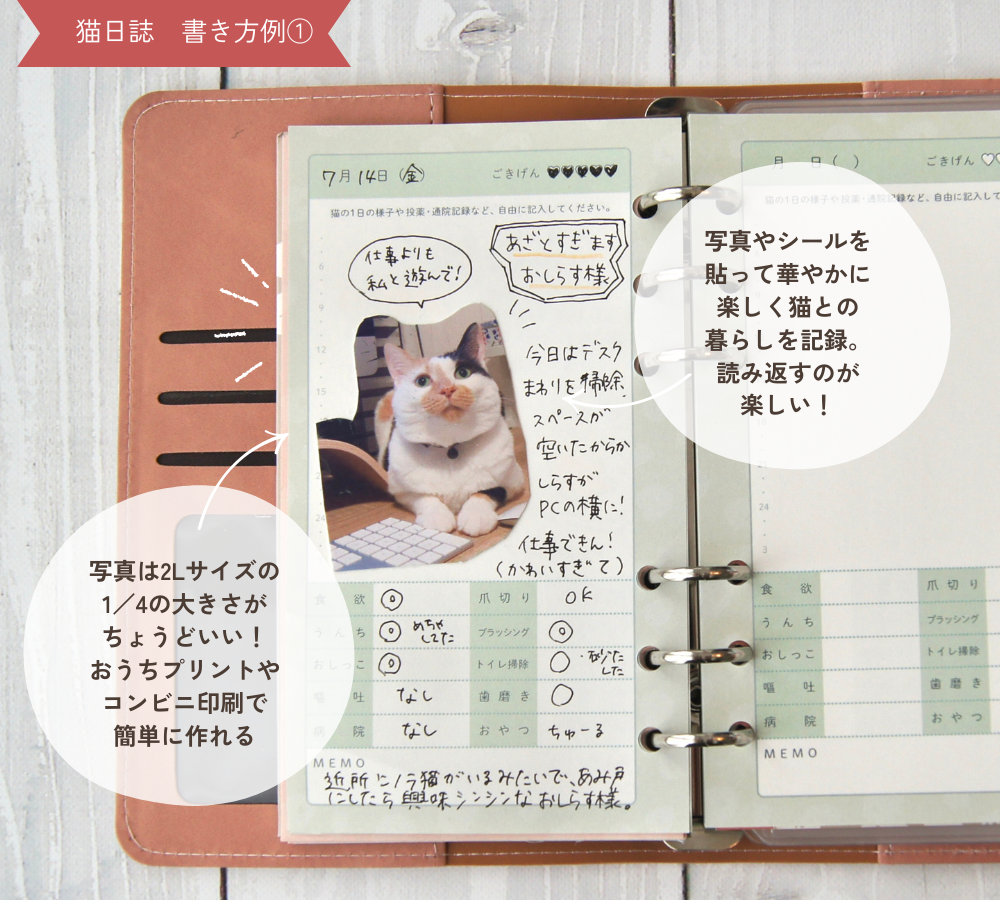 猫日誌 書き方例①
7月14日(金) ごきげん ♥♥♥♥♥
猫の1日の様子や投薬・通院記録など、自由に記入してください。
仕事よりも
私と遊んで!
あざとすぎます
おしらす様
今日はデスク
まわりを掃除。
スペースが
空いたからか
しらすが
PCの横に!
仕事できん!
(かわいすぎて)
6
9
12
15
24
3
食欲 ◎ 爪切り OK
うんち ◎ めちゃしてた ブラッシング ◎
おしっこ ◎ トイレ掃除 ○ ・砂うたした
嘔吐 なし 歯磨き ○
病院 なし おやつ ちゅーる
MEMO
近所にノラ猫がいるみたいで、あみ戸
にしたら興味シンシンなおしらす様。
写真は2Lサイズの
1/4の大きさが
ちょうどいい!
おうちプリントや
コンビニ印刷で
簡単に作れる
月 日( ) ごきげん
猫の1日の様子や投薬・通院記録など、自由に記入して
写真やシールを
貼って華やかに
楽しく猫との
暮らしを記録。
読み返すのが
楽しい!
24
3
食欲 爪切り
うんち ブラッシング
おしっこ トイレ掃除
嘔吐 歯磨き
病院 おやつ
MEMO